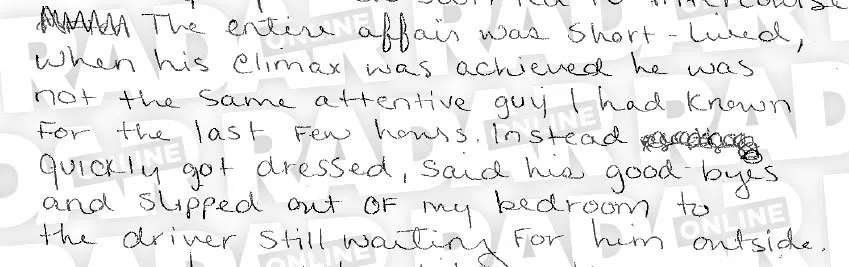 The entire affair was short-lived,
when his climax was achieved he was
not the same attentive guy I had known
For the last Few hours. Instead
quickly got dressed, said his good-byes
and slipped out OF my bedroom to
the driver still waiting For him outside.
RADAR ONLINE